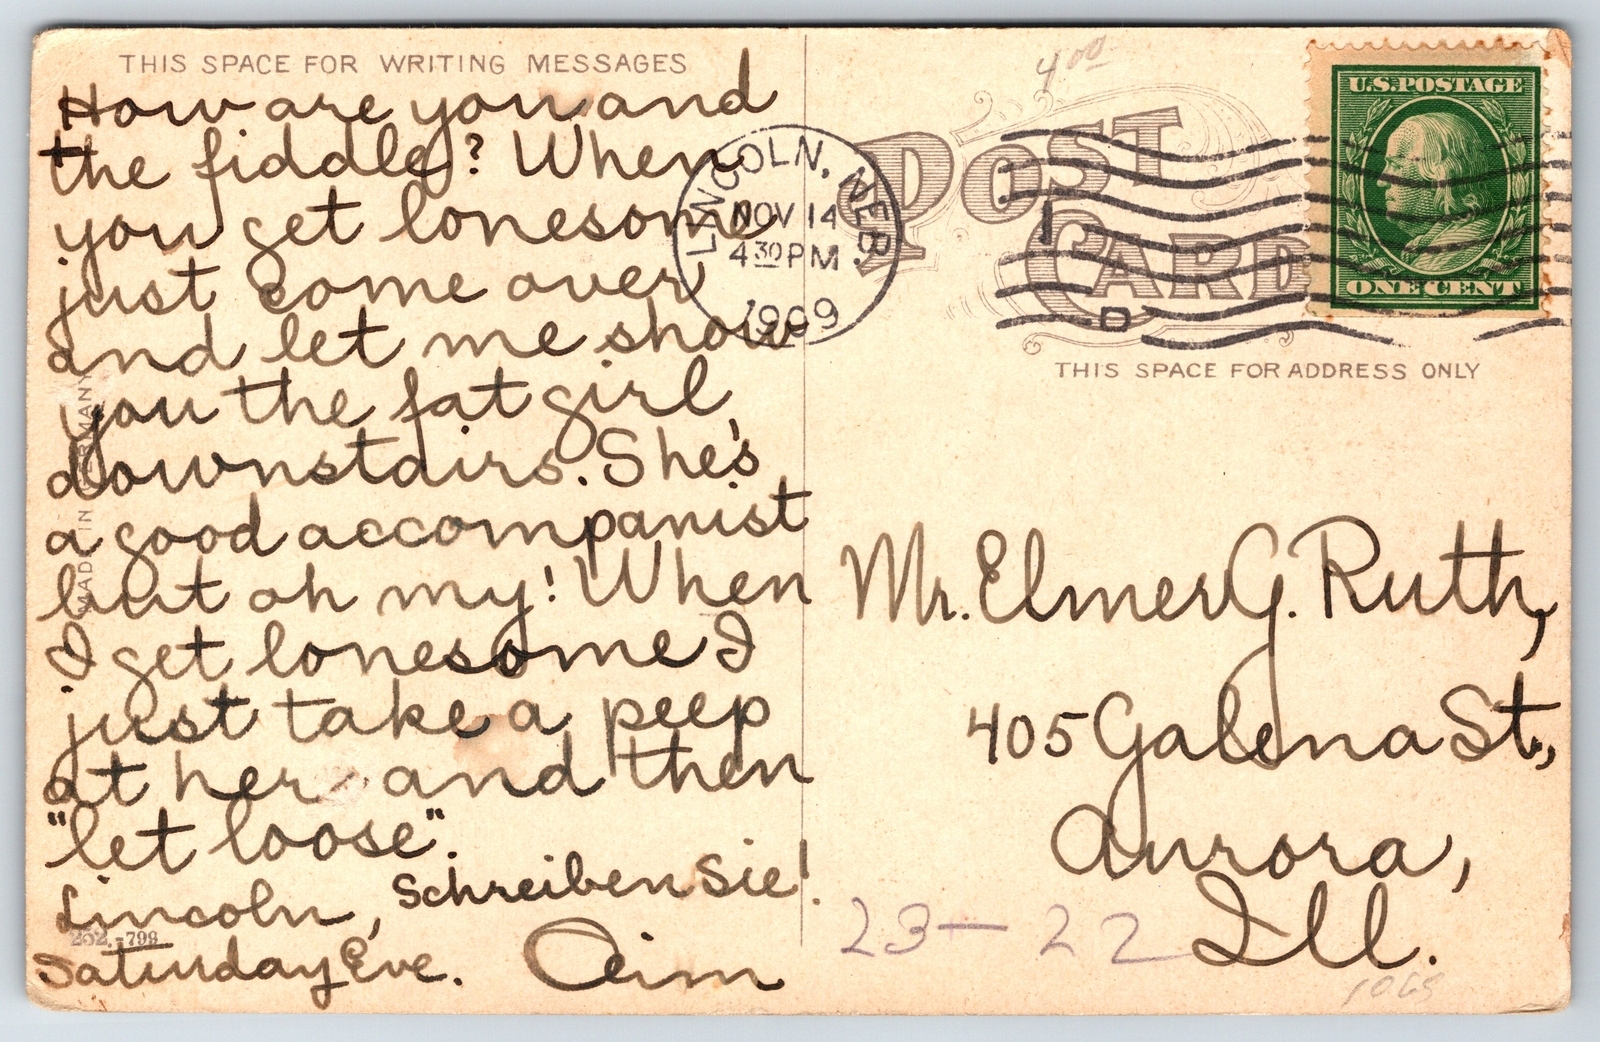 THIS SPACE FOR WRITING MESSAGES
How are you and
the fiddle? When
you get lonesome
just come over
and let me show
you the fat girl,
downstairs. She's
a good accompanist
but oh my! When
I get lonesome I
just take a peep
at her and then
"let loose".
Lincoln, Schreiben Sie!
Saturday Eve.
MADE IN GERMANY
202.-799
LINCOLN, NEB.
NOV 14
4 30 PM
1909
POST
CARD
1
D
4.00
U.S. POSTAGE
ONE CENT
THIS SPACE FOR ADDRESS ONLY
Mr. Elmer G. Ruth,
405 Galena St.,
Aurora,
Ill.
23 - 22